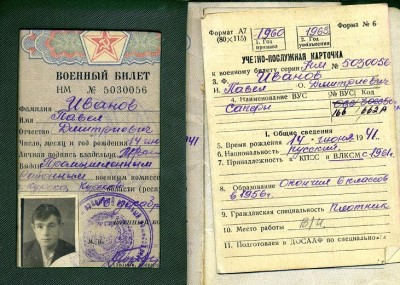 ВОЕННЫЙ БИЛЕТ
НМ № 5030056
Фамилия Иванов
Имя Павел
Отчество Дмитриевич
Число, месяц и год рождения 14 июн
Личная подпись владельца
Выдан Промышленным
районным военным комисс
Курска, Курской области (респ
М.П.
Формат А7
(80×115)
1960
1. Год
призыва
1963
2. Год
увольнения
Форма № 6
УЧЕТНО-ПОСЛУЖНАЯ КАРТОЧКА
к военному билету серии НМ № 5030056
3. Ф. Иванов
И. Павел О. Дмитриевич
4. Наименование ВУС № ВУС Код
Сапёры
166 663А
I. Общие сведения
5. Время рождения 14 июня 1941.
6. Национальность русский.
7. Принадлежность к КПСС и ВЛКСМ с 1961г.
8. Образование Окончил 6 классов
в 1956г.
9. Гражданская специальность Плотник
10. Место работы
11. Подготовлен в ДОСААФ по специально